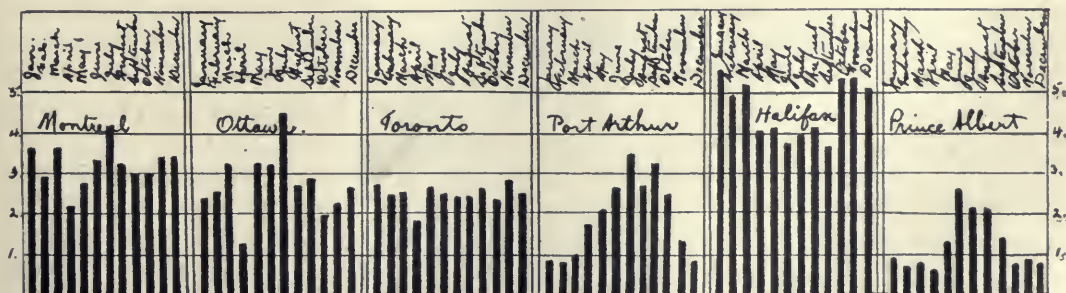 Jan. Feb. March April May June July August Septmbr October November December
January February March April May June July August Septmbr October November December
January February March April May June July August Septmbr October November December
January February March April May June July August Septmbr October November December
January February March April May June July August Septmbr October November December
January February March April May June July August Septmbr October November December
5. 5.
Montreal Ottawa. Toronto Port Arthur Halifax Prince Albert
4. 4.
3. 3.
2. 2.
1. 1.